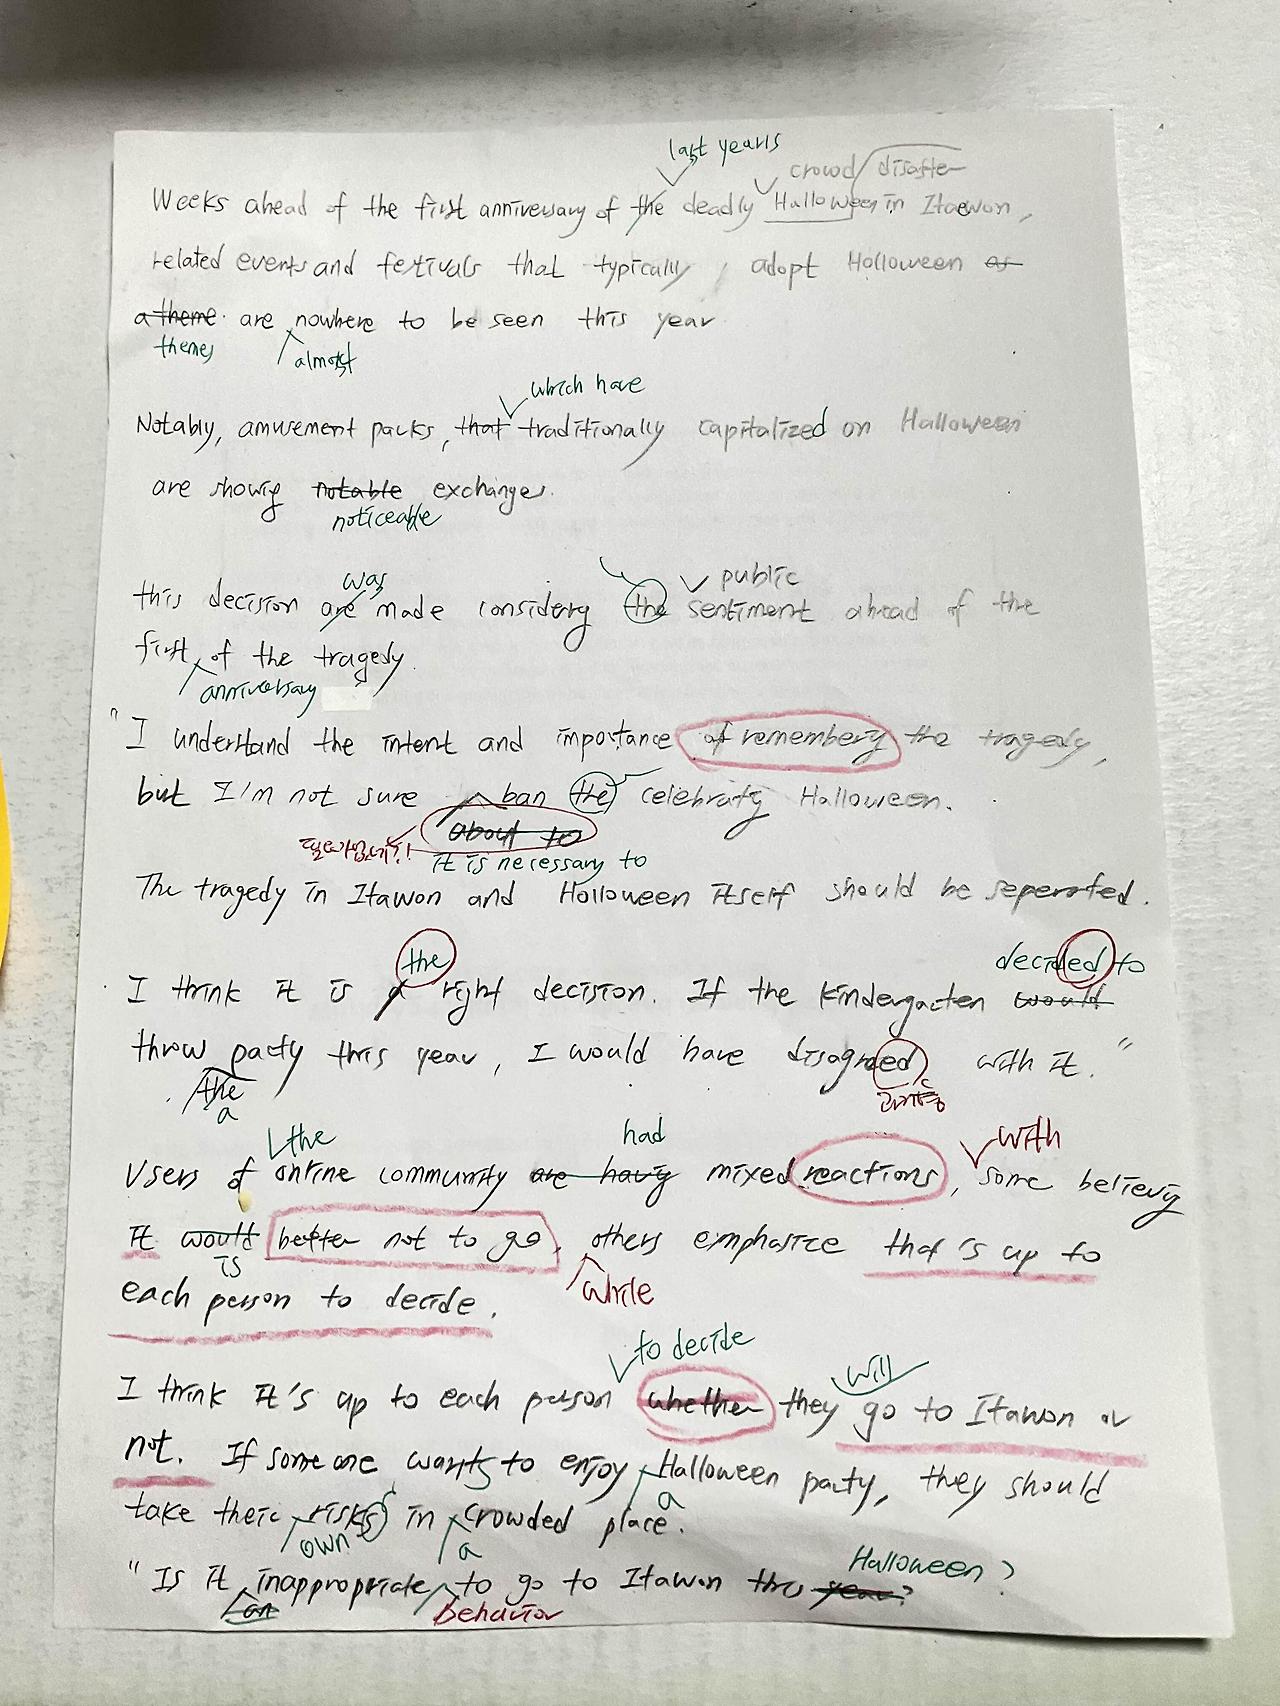 last years
crowd disaster
Weeks ahead of the first anniversary of the deadly Halloween in Itaewon,
related events and festivals that typically, adopt Holloween as
a theme are nowhere to be seen this year
themes almost
which have
Notably, amusement parks, that traditionally capitalized on Halloween
are showig notable exchanges.
noticeable
was public
this decision are made considerig the sentiment ahead of the
first of the tragedy.
anniversary
"I understand the intent and importance of rememberig the tragedy,
but I'm not sure ban the celebratig Halloween.
about to
it is necessary to
The tragedy in Itawon and Holloween itself should be seperated.
the decided to
I think it is a right decision. If the kindergarten would
throw party this year, I would have disagreed with it."
the
a
the had with
Users of online community are havig mixed reactions, some believig
it would better not to go, others emphasize that's up to
is while
each person to decide.
to decide will
I think it's up to each person whether they go to Itawon or
not. If someone wants to enjoy Halloween party, they should
a
take their risks in crowded place.
own a
Halloween?
"Is it inappropriate to go to Itawon this year?
an behavior